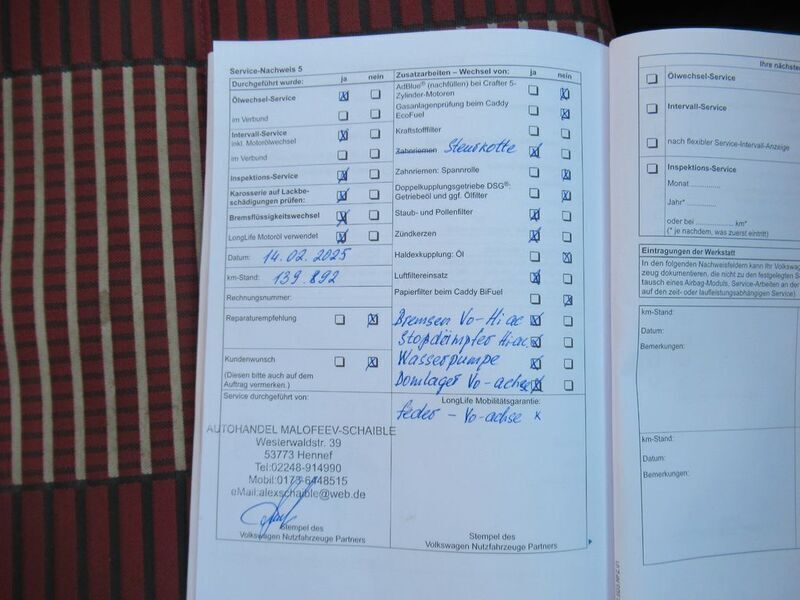 Service-Nachweis 5
Durchgeführt wurde: ja nein
Ölwechsel-Service
im Verbund
Intervall-Service
inkl. Motorölwechsel
im Verbund
Inspektions-Service
Karosserie auf Lackbe-
schädigungen prüfen:
Bremsflüssigkeitswechsel
LongLife Motoröl verwendet
Datum: 14.02.2025
km-Stand: 139.892
Rechnungsnummer:
Reparaturempfehlung
Kundenwunsch
(Diesen bitte auch auf dem
Auftrag vermerken.)
Service durchgeführt von:
AUTOHANDEL MALOFEEV-SCHAIBLE
Westerwaldstr. 39
53773 Hennef
Tel:02248-914990
Mobil:0173-6448515
eMail:alexschaible@web.de
Stempel des
Volkswagen Nutzfahrzeuge Partners
Zusatzarbeiten – Wechsel von: ja nein
AdBlue® (nachfüllen) bei Crafter 5-
Zylinder-Motoren
Gasanlagenprüfung bei Caddy
EcoFuel
Kraftstofffilter
Zahnriemen Steurkotte
Zahnriemen: Spannrolle
Doppelkupplungsgetriebe DSG®:
Getriebeöl und ggf. Ölfilter
Staub- und Pollenfilter
Zündkerzen
Haldexkupplung: Öl
Luftfiltereinsatz
Papierfilter beim Caddy BiFuel
Bremsen Vo-Hi ac
Stopdömpfer Hi-ac
Wasserpumpe
Domlager Vo-achse
LongLife Mobilitätsgarantie:
feder - Vo-achse x
Stempel des
Volkswagen Nutzfahrzeuge Partners
Ihre nächste
Ölwechsel-Service
Intervall-Service
nach flexibler Service-Intervall-Anzeige
Inspektions-Service
Monat ............
Jahr* ............
oder bei ............ km*
(* je nachdem, was zuerst eintritt)
Eintragungen der Werkstatt
In den folgenden Nachweisfeldern kann Ihr Volkswage
zeug dokumentieren, die nicht zu den festgelegten Se
tausch eines Airbag-Moduls, Service-Arbeiten an der
auf den zeit- oder laufleistungsabhängigen Service)
km-Stand:
Datum:
Bemerkungen:
km-Stand:
Datum:
Bemerkungen: